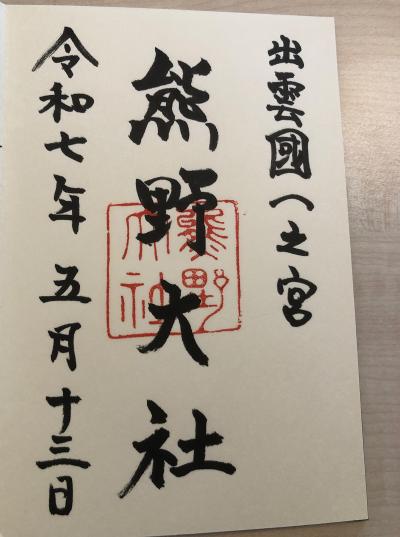 出雲國一之宮
熊野大社
熊野大社
令和七年五月十三日